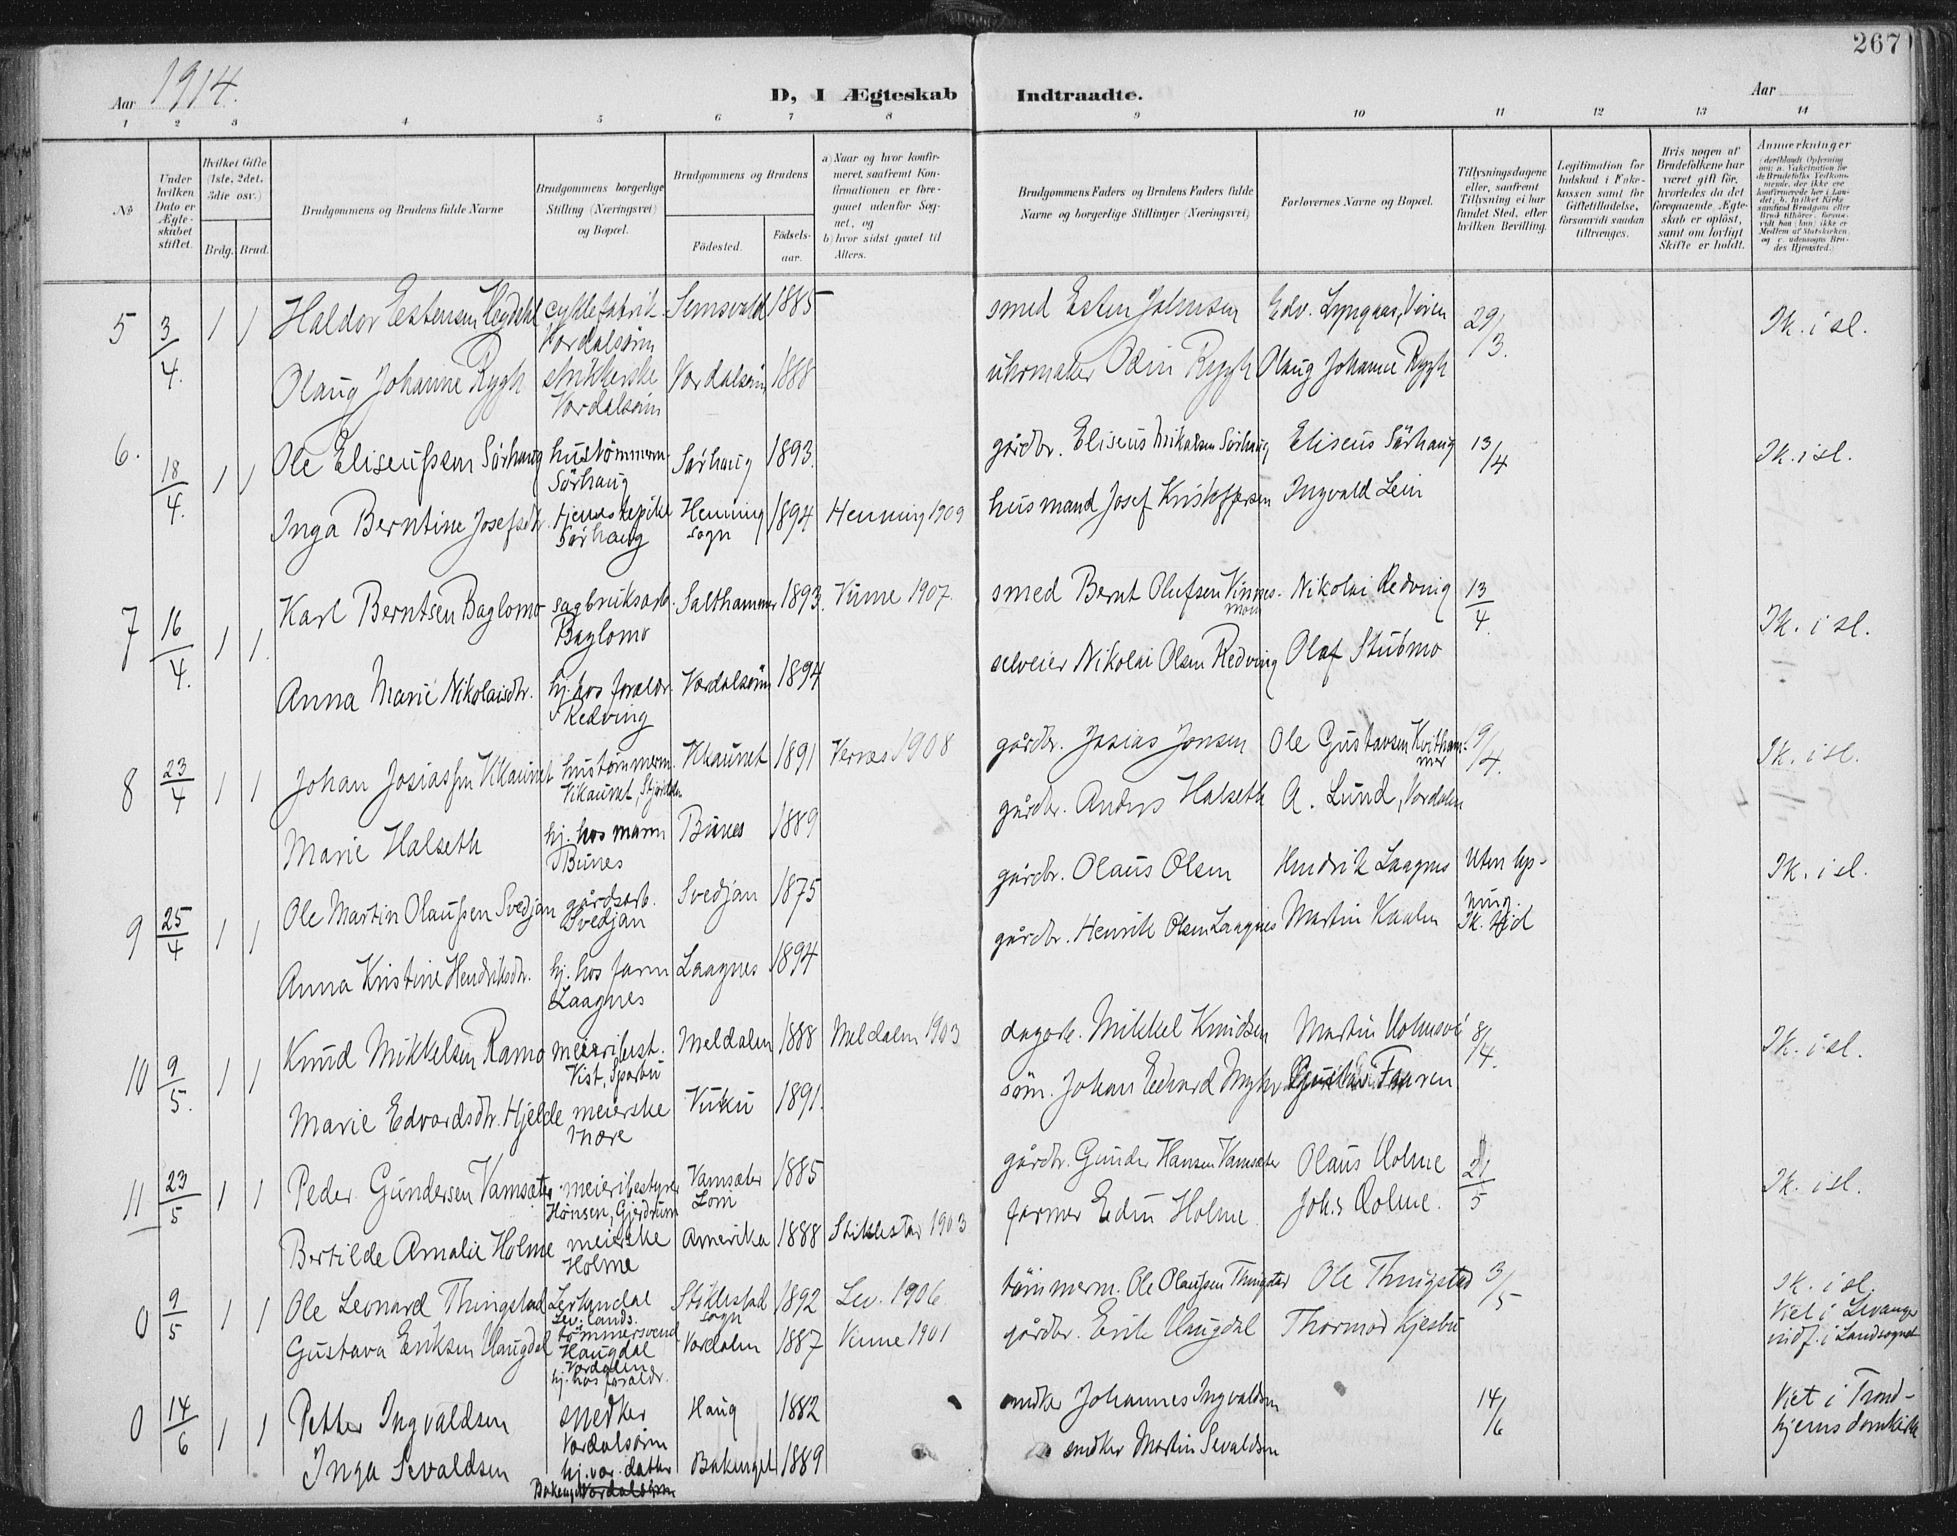 267
Aar 1914.
D, I Ægteskab Indtraadte.
Aar
1 2 3 4 5 6 7 8 9 10 11 12 13 14
No.
Under hvilken Dato er Ægteskabet stiftet.
Hvilket Gifte (1ste, 2det, 3die osv.)
Brdg. Brud.
Brudgommens og Brudens fulde Navne
Brudgommens borgerlige Stilling (Næringsvei) og Bopæl.
Brudgommens og Brudens
Fødested. Fødselsaar.
a) Naar og hvor konfirmeret, saafremt Konfirmationen er foregaaet udenfor Sognet, og
b) hvor sidst gaaet til Alters.
Brudgommens Faders og Brudens Faders fulde Navne og borgerlige Stillinger (Næringsvei)
Forlovernes Navne og Bopæl.
Tillysningsdagene eller, saafremt Tillysning ei har fundet Sted, efter hvilken Bevilling.
Legitimation for Indskud i Enkekassen samt for Giftetilladelse, forsaavidt saadan tiltrænges.
Hvis nogen af Brudefolkene har været gift før, hvorledes da det foregaaende Ægteskab er opløst, samt om lovligt Skifte er holdt.
Anmerkninger
5 3/4. 1 1 Haldor Estensen Heydahl cyklefabrik. Vordalsørn Semsvald 1885 smed Esten Johnsen Edv. Lyngaas, Vinne 29/3. Ik. i sl.
Olaug Johanne Rygh strikkerske Vordalsørn Vordalsørn 1888 uhrmaker Odin Rygh Olaug Johanne Rygh
6. 18/4. 1 1 Ole Eliseussen Sørhaug hustømmerm. Sørhaug Sørhaug 1893. gårdbr. Eliseus Mikalsen Sørhaug Eliseus Sørhaug 13/4 Ik. i sl.
Inga Berntine Josefsdtr. tjenestepike Sørhaug Henning sogn 1894 Henning 1909 husmand Josef Kristoffersen Ingvald Lein
7 16/4. 1 1. Karl Berntsen Baglomo sagbruksarb. Baglomo Salthammer 1893. Vinne 1907. smed Bernt Olufsen Vinnesmon Nikolai Redving 13/4. Ik. i sl.
Anna Marie Nikolaisdtr. hj. hos foreldr. Redving Vordalsørn 1894 selveier Nikolai Olsen Redving Olaf Stubmo
8 23/4 1 1 Johan Josiassen Vikaunet hustømmerm. Vikaunet, Vikaunet 1891 Vernes 1908 gårdbr. Josias Jonsen Ole Gustavsen Kvithammer 19/4. Ik. i sl.
Marie Halseth hj. hos mann Bunes Bunes 1889 gårdbr. Anders Halseth A. Lund, Vordalen
9 25/4 1 1 Ole Martin Olaussen Svedjan gårdsarb. Svedjan Svedjan 1875 gårdbr. Olaus Olsen Hendrik Laagnes Uten lysning. Ik. i sl.
Anna Kristine Hendriksdtr. hj. hos farm Laagnes Laagnes 1894 gårdbr. Henrik Olsen Laagnes Martin Kaalen
10 9/5. 1 1 Knud Mikkelsen Ramo meieribest. Vist, Sparbu Meldalen 1888 Meldalen 1903 dagarb. Mikkel Knudsen Martin 8/4. Ik. i sl.
Marie Edvardsdtr. Hjelde meierske Mære Vuku 1891. søm. Johan Edvard Fauren
11 23/5 1 1 Peder Gundersen Vamsæter meieribestyrer Hønsen, Gjerdrum Vamsæter Lom 1885 gårdbr. Gunder Hansen Vamsæter Olaus Holme 21/5 Ik. i sl.
Bertilde Amalie Holme meierske Holme Amerika 1888 Stiklestad 1903 farmer Edin Holme Johs Holme.
0 9/5 1 1 Ole Leonard Thingstad Leirkundal Lev. lands. tømmersvend Stiklestad sogn 1892 Lev. 1906. tømmerm. Ole Olaussen Thingstad Ole Thingstad 3/5 Ik. i sl. Viet i Levanger indf. i Landsognet
Gustava Eriksen Haugdal Haugdal Vordalen hj. hos foraldr. Vordalen 1887 Vinne 1901 gårdbr. Erik Haugdal Thormod Kjesbu
0 14/6 1 1 Petter Ingvaldsen snedker Vordalsørn Haug 1882 snedker Johannes Ingvaldsen 14/6 Viet i Trondhjems domkirke
Inga Sevaldsen hj. var. datter Vordalsørn Bakenget 1889 snedker Martin Sevaldsen